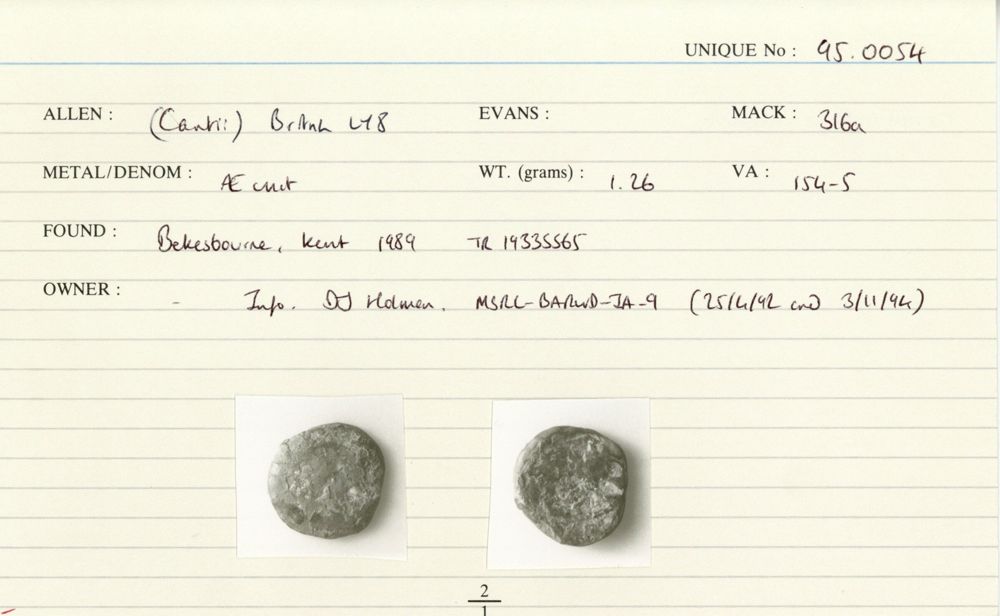 UNIQUE No : 95.0054
ALLEN : (Cantii) British LY8 EVANS : MACK : 316a
METAL/DENOM : Æ unit WT. (grams) : 1.26 VA : 154-5
FOUND : Bekesbourne, Kent 1989 TR 19335565
OWNER : - Info. DJ Holman. (25/4/92 and 3/11/94)
2
1